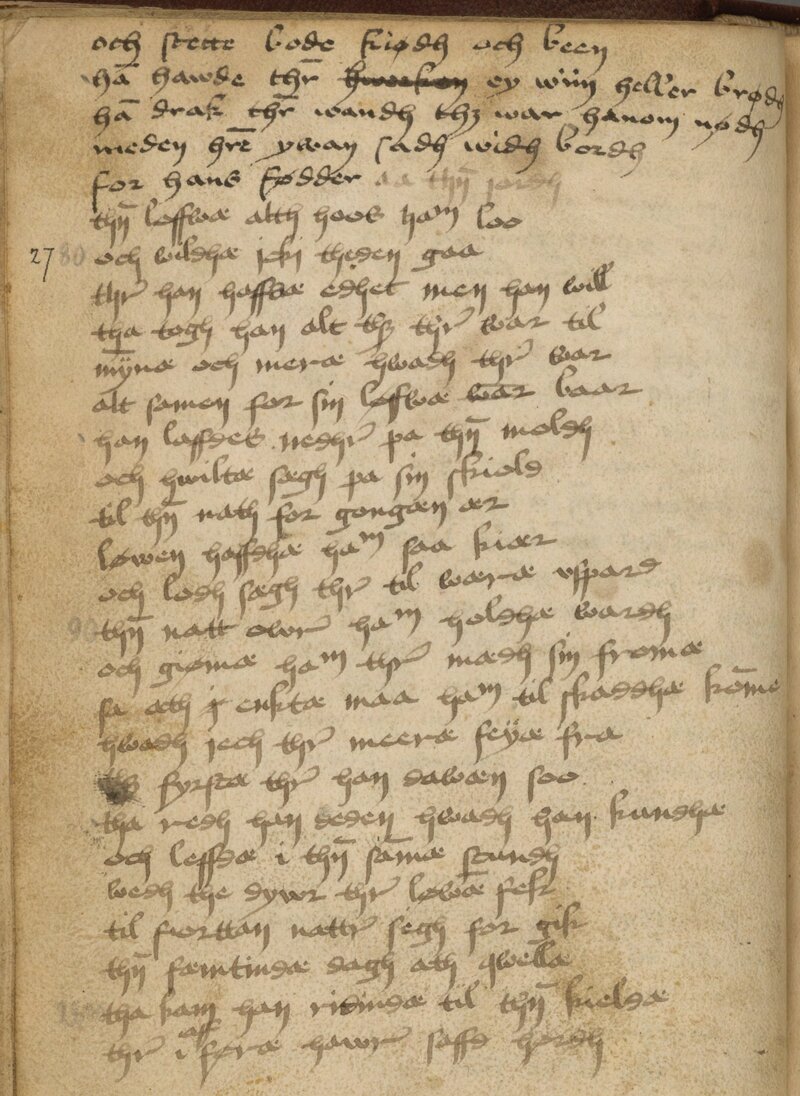 och stette bode kiødh och been
hā hawde thr̄ ey wiin heller brødh
hā drak thr̄ wandh thȝ war hanom nødh
meden hr̄e ywan sadh widh bordh
for hans fødder aa thn̄ jordh
thn̄ løffwæ alth hoos ham loo
27 80 och wildhæ jcki theden gaa
thr̄ han haffdæ edhet men han will
tha togh han alt thȝ thr̄ war til
mȳnæ och meræ hwadh thr̄ war
alt samen for sin løfwæ war baar
han laffdes nedhr̄ pa thn̄ moldh
och hwiltæ sægh pa sin skiold
til thn̄ nath for gongæn ær
løwen haffdhæ ham saa kiær
och lodh sægh thr̄ til wæræ vspard
90 thn̄ natt owr̄ ham holdhæ wardh
och giømæ ham thr̄ mædh sin fromæ
sa ath enktæ maa ham til skaddhæ kōme
hwadh jech thr̄ meeræ seyæ fra
thȝ fyrstæ thr̄ han dawæn soo
tha redh han deden hwadh han kundhæ
och leffdæ i thn̄ sāmæ stundh
wedh the dywr thr̄ løwæ fek
til fiorttan nattr̄ segh for gik
thn̄ fæmtindæ dagh ath qwellæ
tha kam han ridindæ til thn̄ kieldæ
thr̄ i aff føræ hawr̄ saffd hørdh